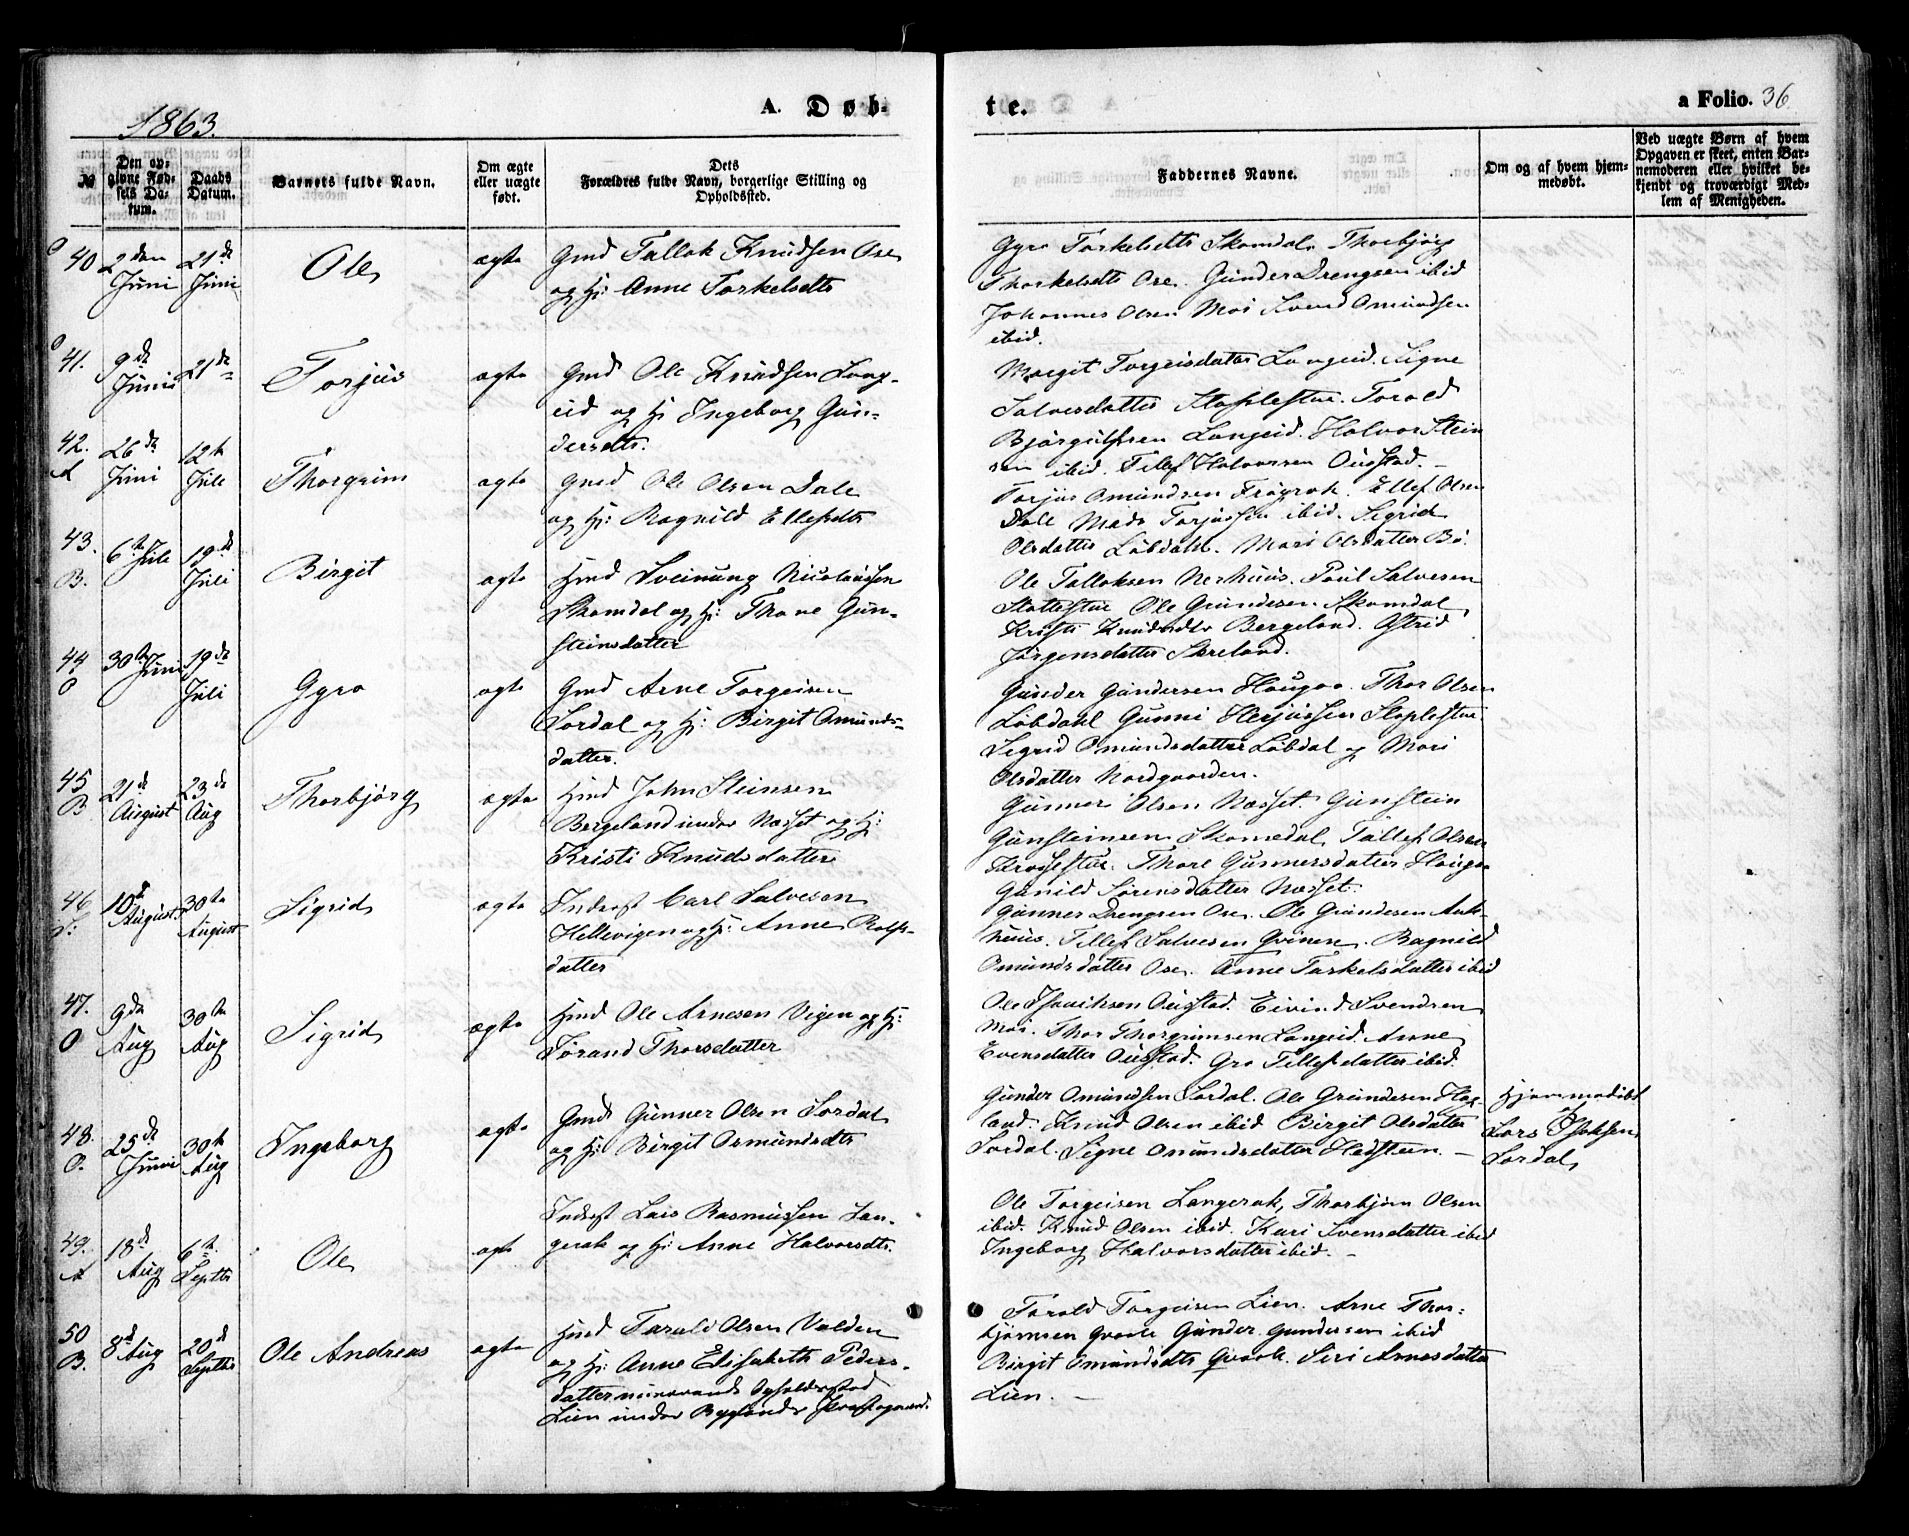 1863.
A. Døb-
te.
a Folio. 36
№
Den opgivne Fødsels Datum.
Daabs Datum.
Barnets fulde Navn.
Om ægte eller uægte født.
Dets Forældres fulde Navn, borgerlige Stilling og Opholdssted.
Faddernes Navne.
Om og af hvem hjemmedøbt.
Ved uægte Børn af hvem Opgaven er skeet, enten Barnemoderen eller hvilket bekjendt og troværdigt Medlem af Menigheden.
O 40 2den Juni 21de Juni Ole ægte
Gmd Tallak Knudsen Ose
og H: Anne Torkelsdtr
Gyro Torkelsdtr Skomdal. Thorbjørg
Thorkelsdtr Ose. Gunder Drengsen ibid
Johannes Olsen Moi Svend Omundsen
ibid.
O 41. 9de Juni 21de Torjus ægte
Gmd Ole Knudsen Lang-
eid og H: Ingeborg Gun-
dersdtr.
Margit Torgeisdatter Langeid. Signe
Salvesdatter Staplestue. Torold
Bjørgulfsen Langeid. Halvor Stein
sen ibid. Tellef Halvorsen Ousstad. -
42. A 26de Juni 12te Juli Thorgrim ægte
Gmd Ole Olsen Dale
og H: Ragnild Ellefsdtr
Torjus Omundsen Frøyrak. Ellef Olsen
Dale Mads Torjussen ibid. Sigrid
Olsdatter Løbdahl. Mari Olsdatter Bø.
43. B. 6te Juli 19de Juli Birgit ægte
Hmd Sveinung Nicolaissen
Skomdal og H: Thone Gun-
steinsdatter
Ole Tallaksen Nerhuus. Poul Salvesen
Stallestue Ole Gundersen Skomdal
Kristi Knudsdtr Bergeland. Astrid
Jørgensdatter Støreland.
44 O 30te Juni 19de Juli Gyro ægte
Gmd Arne Torgeisen
Sordal og H: Birgit Omunds-
datter.
Gunder Gundersen Hougaa. Thor Olsen
Løbdahl Gunni Herjussen Staplestue.
Sigrid Omundsdatter Løbdal og Mari
Olsdatter Nordgaarden.
45 B 21de August 23de Aug Thorbjørg ægte
Hmd John Steinsen
Bergeland under Næsset og H:
Kristi Knudsdatter
Gunner Olsen Næsset. Gunstein
Gunsteinsen Skomedal, Tallef Olsen
Thore Gunnersdatter Hougaa
Gunild Sørensdatter Næsset.
46 S: 10de August. 30te August Sigrid ægte
Inderst Carl Salvesen
Hellevigen og H: Anne Rolfs-
datter
Gunner Drengsen Ose. Ole Gundersen Aust-
huus. Tellef Salvesen Ragnild
Omundsdatter Ose. Anne Tarkelsdatter ibid
47. O 9de Aug 30te Aug Sigrid ægte
Hmd Ole Arnesen Vigen og H:
Sørand Thorsdatter
Ole Ousstad. Eivind Svendsen
Moi. Thor Thorgrimsen Langeid. Anne
Evensdatter Ousstad. Gro Tellefsdatter ibid.
48. O. 25de Juni 30te Aug Ingeborg ægte
Gmd Gunner Olsen Sordal
og H: Birgit Osmundsdtr
Gunder Omundsen Sordal. Ole Gundersen Hog-
land. Knud Olsen ibid Birgit Olsdatter
Sordal. Signe Omundsdatter Hedsteen. -
Hjemmedøbt
af
Lars Isaksen
Sordal
49. A 18de Aug 6te Septbr Ole ægt
Inderst Lars Rasmussen Lan-
gerak og H: Anne Halvorsdtr.
Ole Torgeisen Langerak, Thorbjørn Olsen
ibid. Knud Olsen ibid. Kari Svensdatter ibid
Ingeborg Halvorsdatter ibid. -
50 B. 8de Aug 20de Septbr Ole Andreas ægte
Hmd Tarald Olsen Valden
og H: Anne Elisabeth Peders-
datter nuværende Opholdssted
Lien under Byglands Præstegaard.
Torold Torgeisen Lien. Arne Thor-
bjørnsen Qvaale Gunder Gundersen ibid
Birgit Omundsdtr Qvaale. Siri Arnesdatter
Lien. -